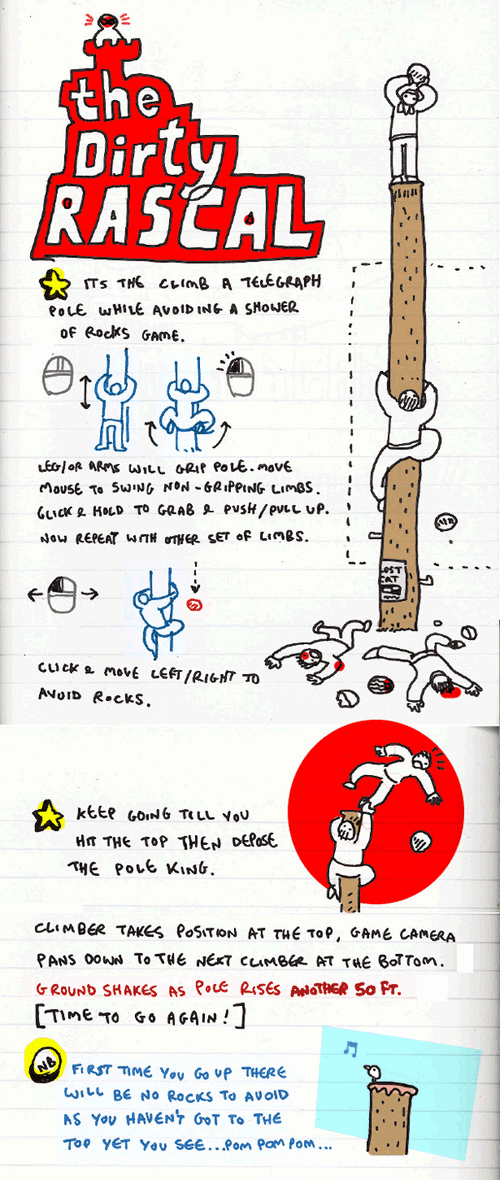 the
Dirty
RASCAL
ITS THE CLIMB A TELEGRAPH
POLE WHILE AVOIDING A SHOWER
OF ROCKS GAME.
LEG/OR ARMS WILL GRIP POLE. MOVE
MOUSE TO SWING NON-GRIPPING LIMBS.
CLICK & HOLD TO GRAB & PUSH/PULL UP.
NOW REPEAT WITH OTHER SET OF LIMBS.
LOST
CAT
CLICK & MOVE LEFT/RIGHT TO
AVOID ROCKS.
KEEP GOING TILL YOU
HIT THE TOP THEN DEPOSE
THE POLE KING.
CLIMBER TAKES POSITION AT THE TOP, GAME CAMERA
PANS DOWN TO THE NEXT CLIMBER AT THE BOTTOM.
GROUND SHAKES AS POLE RISES ANOTHER 50 FT.
[TIME TO GO AGAIN!]
NB
FIRST TIME YOU GO UP THERE
WILL BE NO ROCKS TO AVOID
AS YOU HAVEN'T GOT TO THE
TOP YET YOU SEE...POM POM POM...